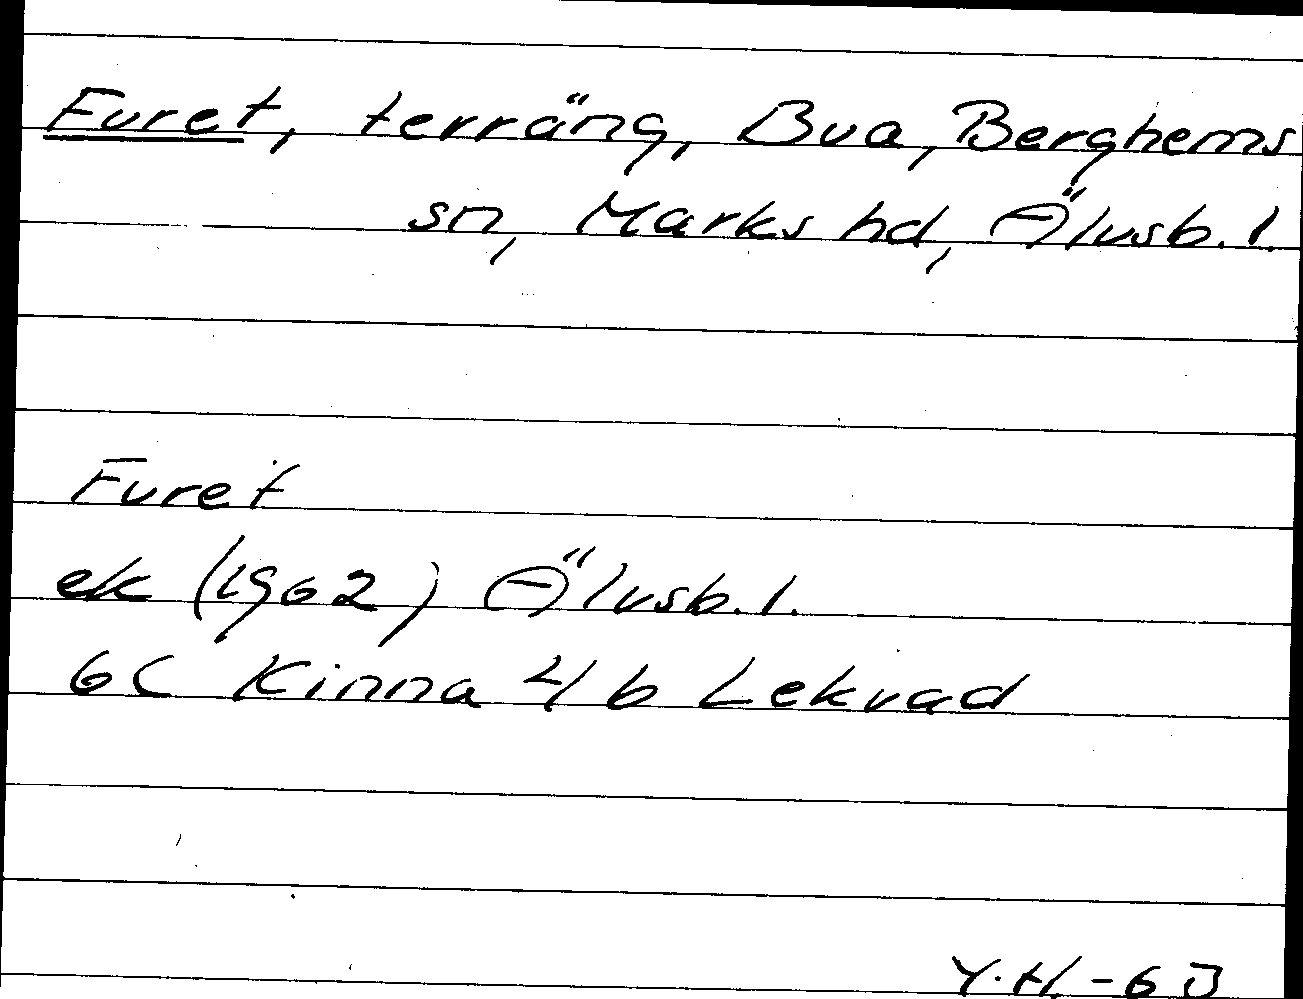 Furet, terräng, Bua, Berghems
sn, Marks hd, Älvsb. l.
Furet
ek (1962) Älvsb. l.
6C Kinna 4/b Lekvad
Y.H. -63